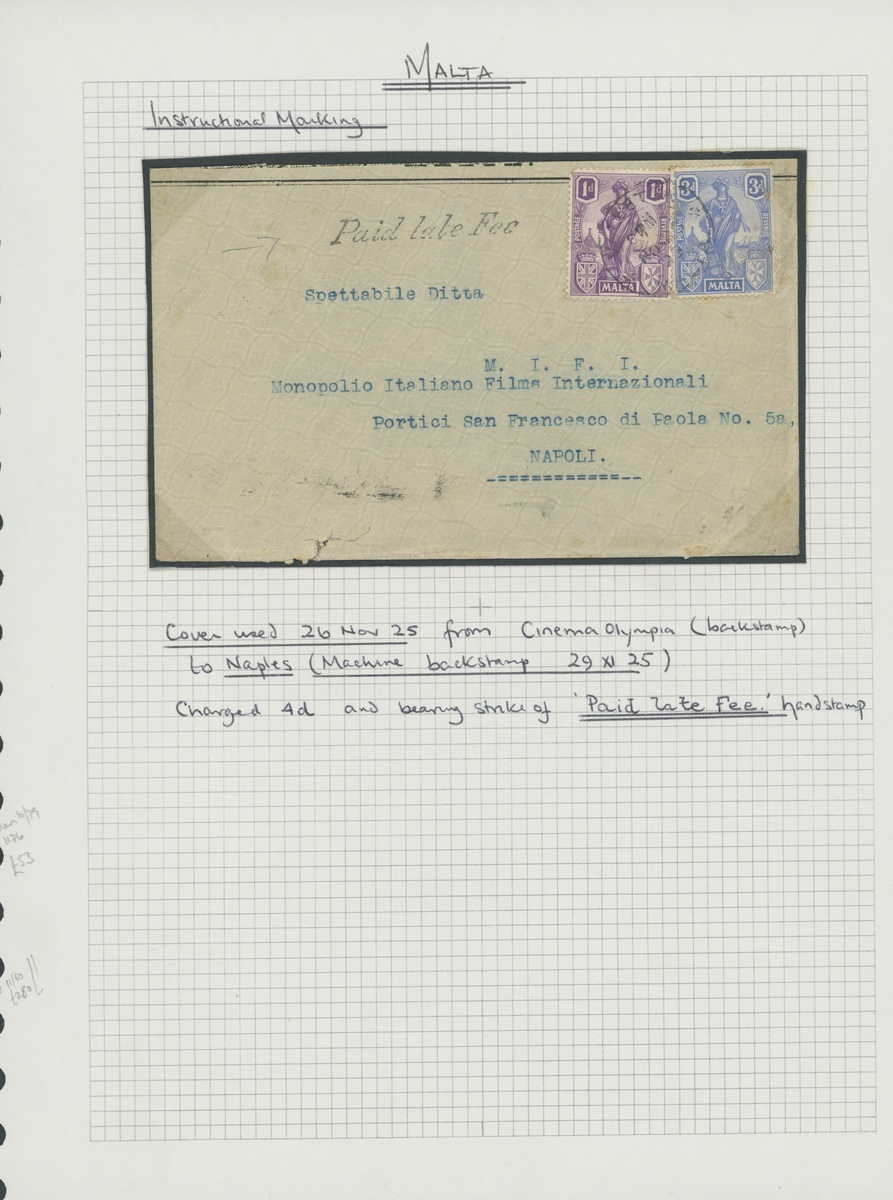 MALTA
Instructional Marking
Paid late Fee
1d 1d 3d 3d
POSTAGE REVENUE POSTAGE REVENUE
MALTA MALTA
Spettabile Ditta
M. I. F. I.
Monopolio Italiano Films Internazionali
Portici San Francesco di Paola No. 5a,
NAPOLI.
Cover used 26 Nov 25 from Cinema Olympia (backstamp)
to Naples (Machine backstamp 29 XI 25)
Charged 4d and bearing strike of 'Paid late Fee.' handstamp
£53
£280